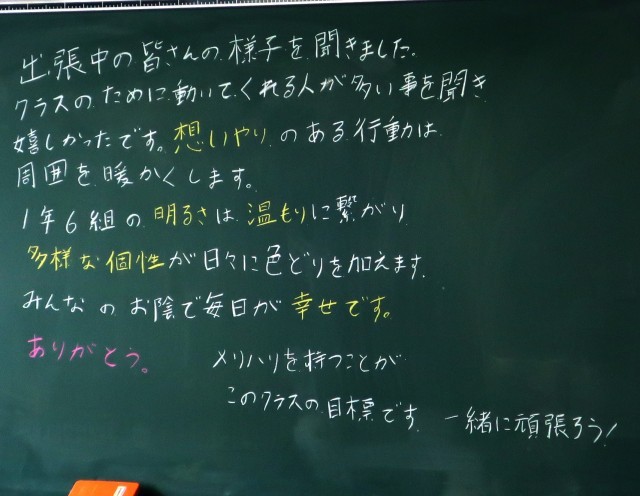 出張中の皆さんの様子を聞きました。
クラスのために動いてくれる人が多い事を聞き
嬉しかったです。想いやりのある行動は
周囲を暖かくします。
1年6組の明るさは温もりに繋がり
多様な個性が日々に色どりを加えます。
みんなのお陰で毎日が幸せです。
ありがとう。
メリハリを持つことが
このクラスの目標です。一緒に頑張ろう!